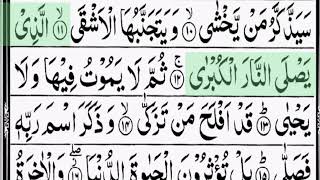 سَيَذَّكَّرُ مَنْ يَّخْشٰى ۙ ۱۰ وَيَتَجَنَّبُهَا الْاَشْقَى ۙ ۱۱ الَّذِىْ
يَصْلَى النَّارَ الْكُبْرٰى ۚ ۱۲ ثُمَّ لَا يَمُوْتُ فِيْهَا وَلَا
يَحْيٰى ؕ ۱۳ قَدْ اَفْلَحَ مَنْ تَزَكّٰى ۙ ۱۴ وَذَكَرَ اسْمَ رَبِّهٖ
فَصَلّٰى ؕ ۱۵ بَلْ تُؤْثِرُوْنَ الْحَيٰوةَ الدُّنْيَا ۖ ۱۶ وَالْاٰخِرَةُ